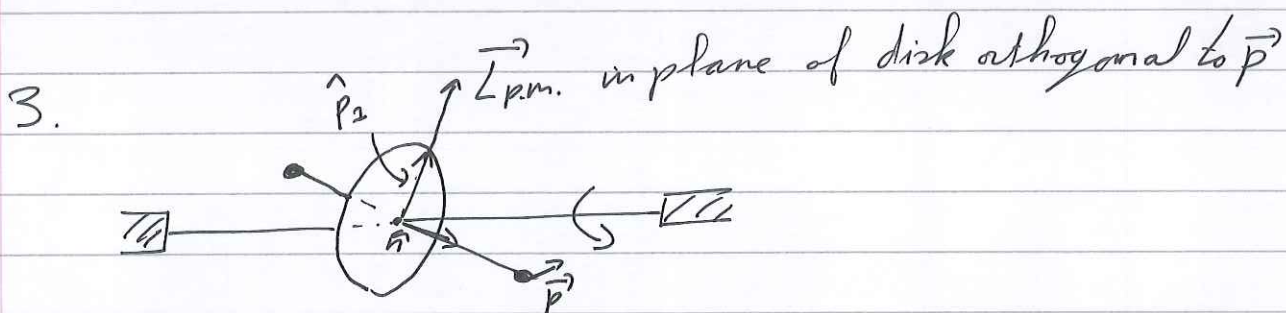 L⃗p.m. in plane of disk orthogonal to p⃗
3.
p̂₂
n̂
p⃗